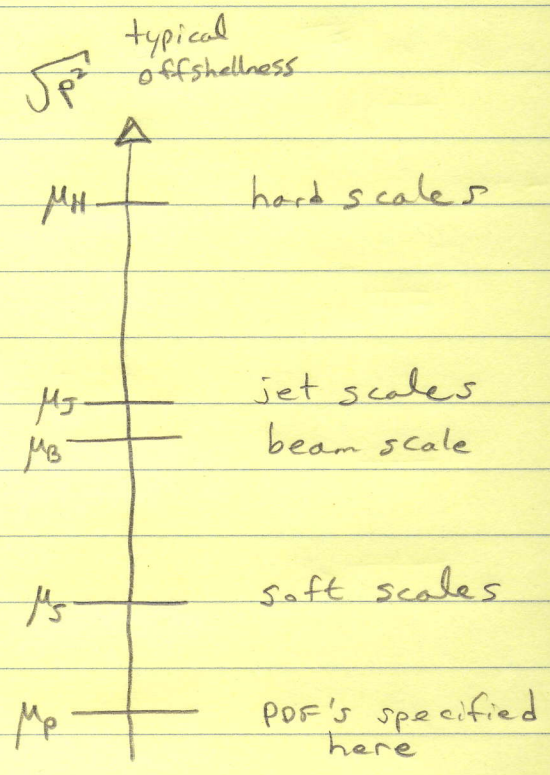 typical
√p² offshellness
μH hard scales
μJ jet scales
μB beam scale
μS soft scales
μP PDF's specified
here